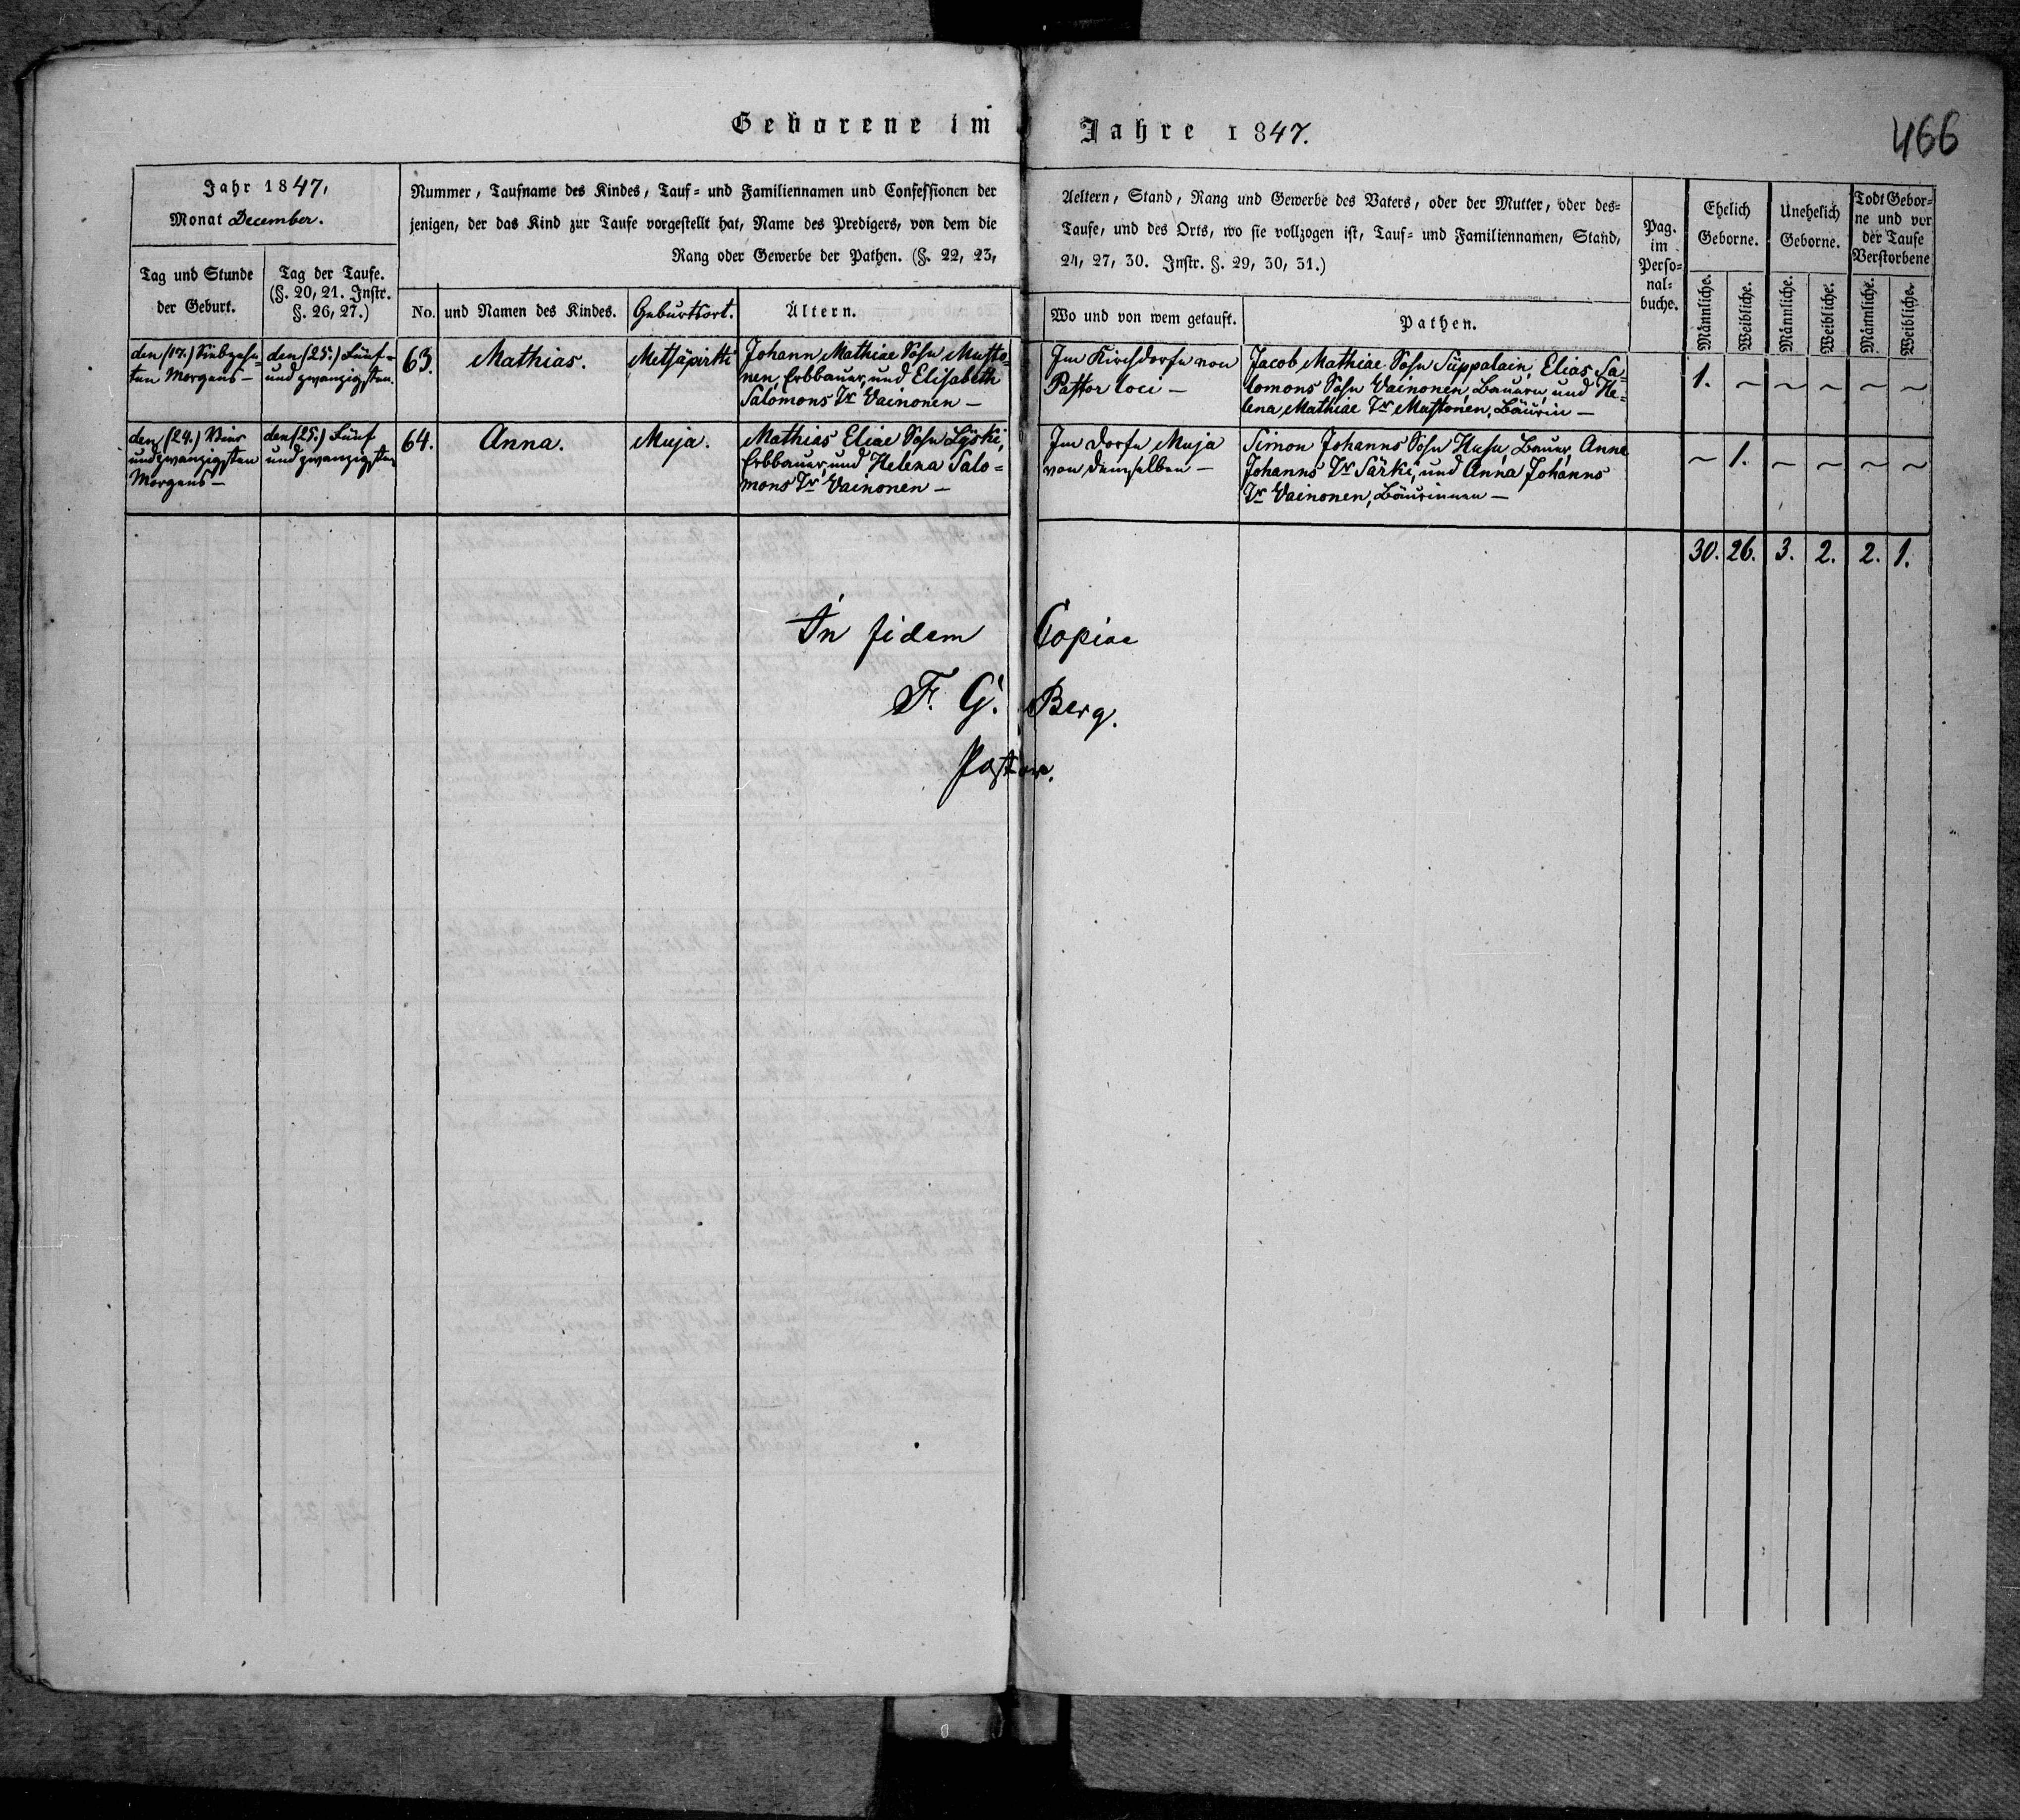 Geborene im Jahre 1847.
466
Jahr 1847,
Monat December.
Nummer, Taufname des Kindes, Tauf- und Familiennamen und Confessionen der
jenigen, der das Kind zur Taufe vorgestellt hat, Name des Predigers, von dem die
Rang oder Gewerbe der Pathen. (§. 22, 23,
Aeltern, Stand, Rang und Gewerbe des Vaters, oder der Mutter, oder des-
Taufe, und des Orts, wo sie vollzogen ist, Tauf- und Familiennamen, Stand,
24, 27, 30. Instr. §. 29, 30, 31.)
Pag.
im
Perso-
nal-
buche.
Ehelich
Geborne.
Unehelich
Geborne.
Todt Gebor-
ne und vor
der Taufe
Verstorbene
Tag und Stunde
der Geburt.
Tag der Taufe.
(§. 20, 21. Instr.
§. 26, 27.)
No. und Namen des Kindes.
Geburtsort.
Ältern.
Wo und von wem getauft.
Pathen.
Männliche.
Weibliche.
Männliche.
Weibliche.
Männliche.
Weibliche.
den (17.) Siebzehn-
ten Morgens —
den (25.) Fünf-
und zwanzigsten.
63.
Mathias.
Metsäpirtti
Johann Mathiae Sohn Musto-
nen, Erbbauer, und Elisabeth
Salomons Tr Vainonen —
Im Kirchdorfe von
Pastor loci —
Jacob Mathiae Sohn Süppalain, Elias Sa-
lomons Sohn Vainonen, Bauern, und He-
lena Mathiae Tr Mustonen, Bäurin —
1. ~ ~ ~ ~ ~
den (24.) Vier
und zwanzigsten
Morgens —
den (25.) Fünf
und zwanzigsten
64.
Anna.
Muja.
Mathias Eliae Sohn Lyski,
Erbbauer, und Helena Salo-
mons Tr Vainonen —
Im Dorfe Muja
von demselben —
Simon Johanns Sohn Husu, Bauer, Anna
Johanns Tr Särki, und Anna Johanns
Tr Vainonen, Bäurinnen —
~ 1. ~ ~ ~ ~
30. 26. 3. 2. 2. 1.
In fidem Copiae
F. G. Berg.
Pastor.